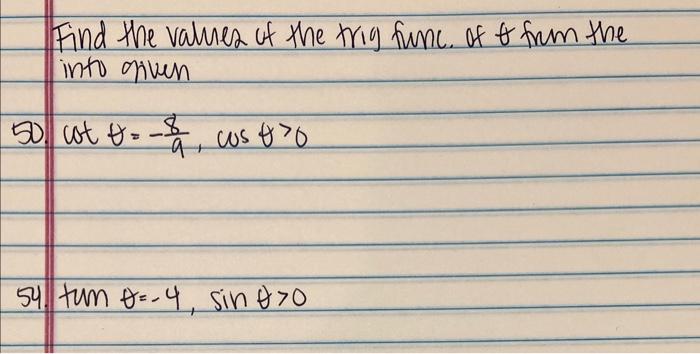 Find the values of the trig func. of θ from the
info given
50. cot θ = -8/9, cos θ > 0
54. tan θ = -4, sin θ > 0